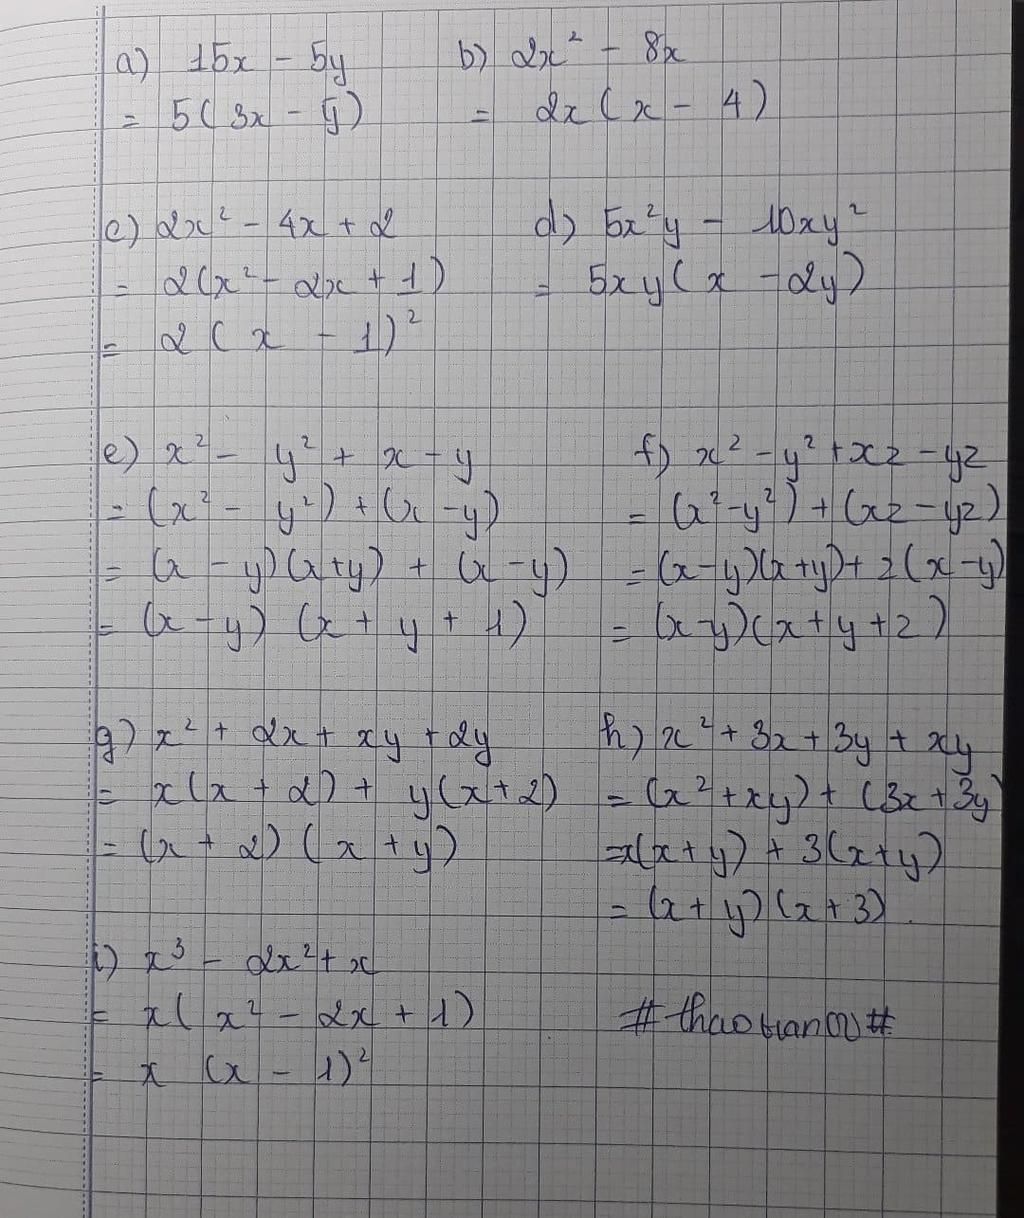 a) 15x - 5y
= 5(3x - y)
b) 2x² - 8x
= 2x(x - 4)
c) 2x² - 4x + 2
= 2(x² - 2x + 1)
= 2(x - 1)²
d) 5x²y - 10xy²
= 5xy(x - 2y)
e) x² - y² + x - y
= (x² - y²) + (x - y)
= (x - y)(x + y) + (x - y)
= (x - y)(x + y + 1)
f) x² - y² + xz - yz
= (x² - y²) + (xz - yz)
= (x - y)(x + y) + z(x - y)
= (x - y)(x + y + z)
g) x² + 2x + xy + 2y
= x(x + 2) + y(x + 2)
= (x + 2)(x + y)
h) x² + 3x + 3y + xy
= (x² + xy) + (3x + 3y
= x(x + y) + 3(x + y)
= (x + y)(x + 3).
i) x³ - 2x² + x
= x(x² - 2x + 1)
= x (x - 1)²